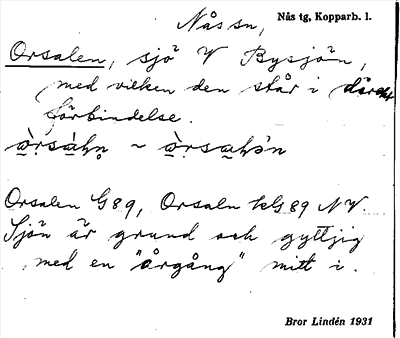 Nås sn, Nås tg, Kopparb. l.
Orsalen, sjö V Bysjön,
med vilken den står i direkt
förbindelse.
Orsalen G89, Orsaln kG89 NV
Sjön är grund och gyttjig
med en "årgång" mitt i.
Bror Lindén 1931